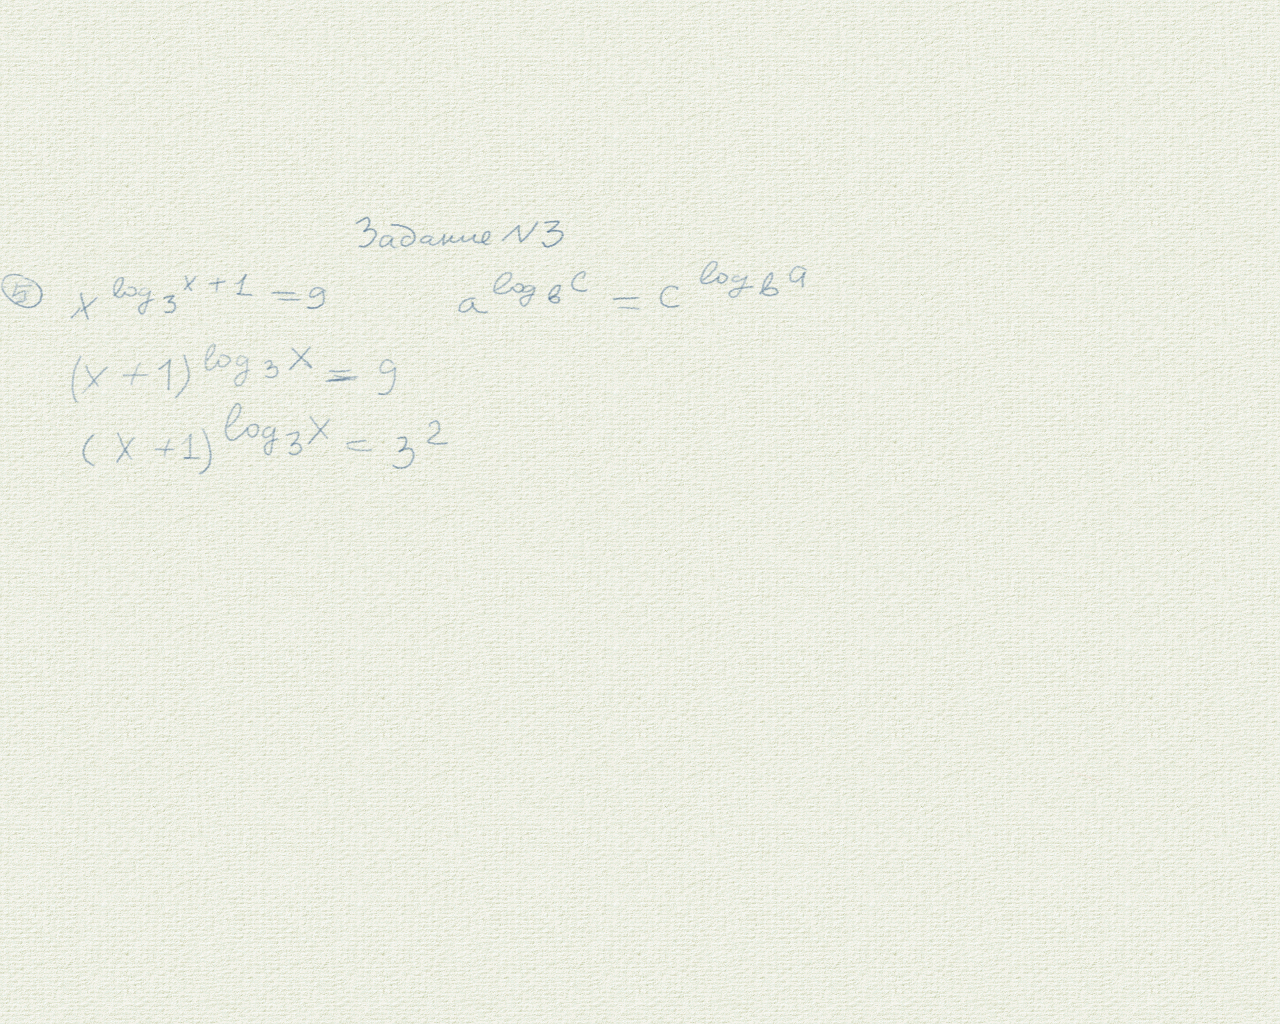 Задание N3
⑤ x^{log_3 x+1} = 9 a^{log_b c} = c^{log_b a}
(x+1)^{log_3 x} = 9
(x+1)^{log_3 x} = 3^2